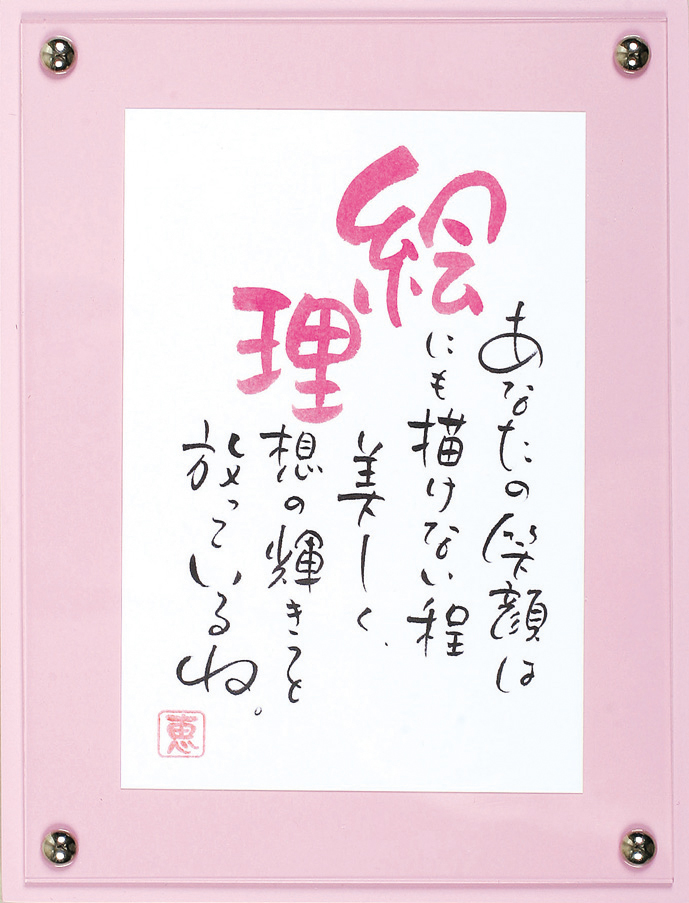 あなたの笑顔は
絵にも描けない程
美しく、
理想の輝きを
放っているね。
恵